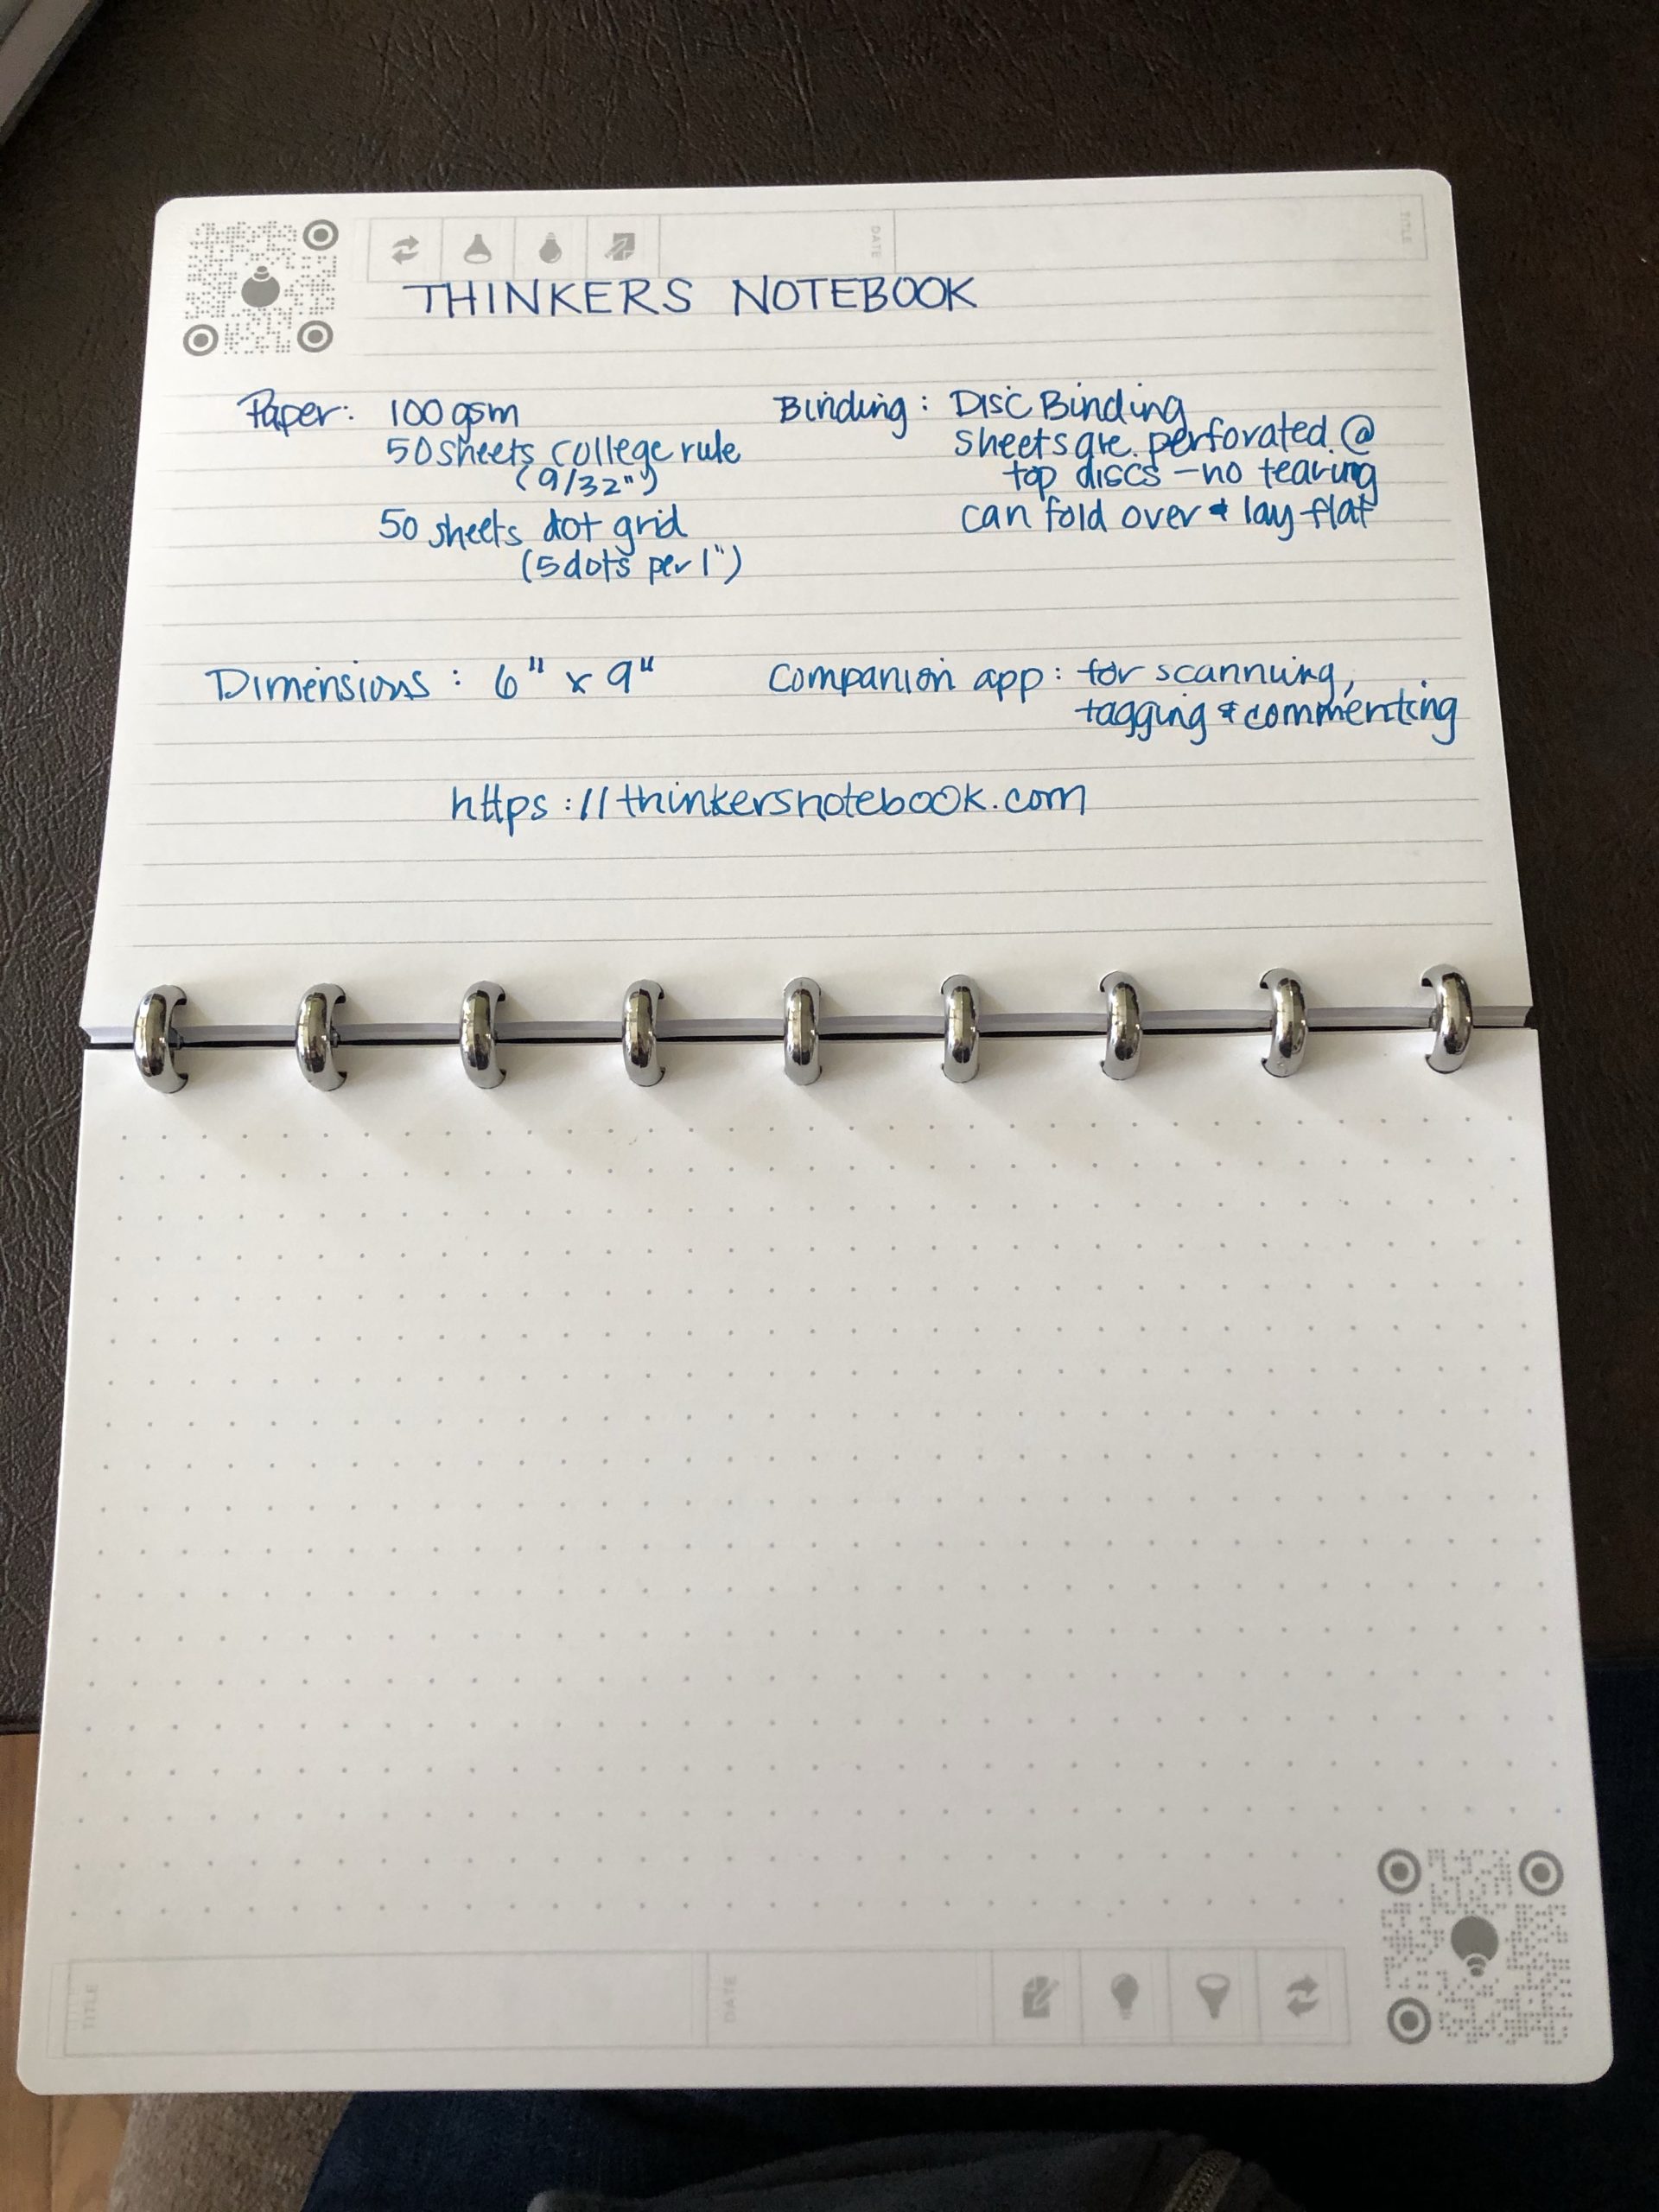 DATE
TITLE
THINKERS NOTEBOOK
Paper: 100 gsm
50 sheets college rule
(9/32")
50 sheets dot grid
(5 dots per 1")
Binding: Disc Binding
sheets are perforated @
top discs - no tearing
can fold over & lay flat
Dimensions: 6" x 9"
Companion app: for scanning,
tagging & commenting
https://thinkersnotebook.com
TITLE
DATE